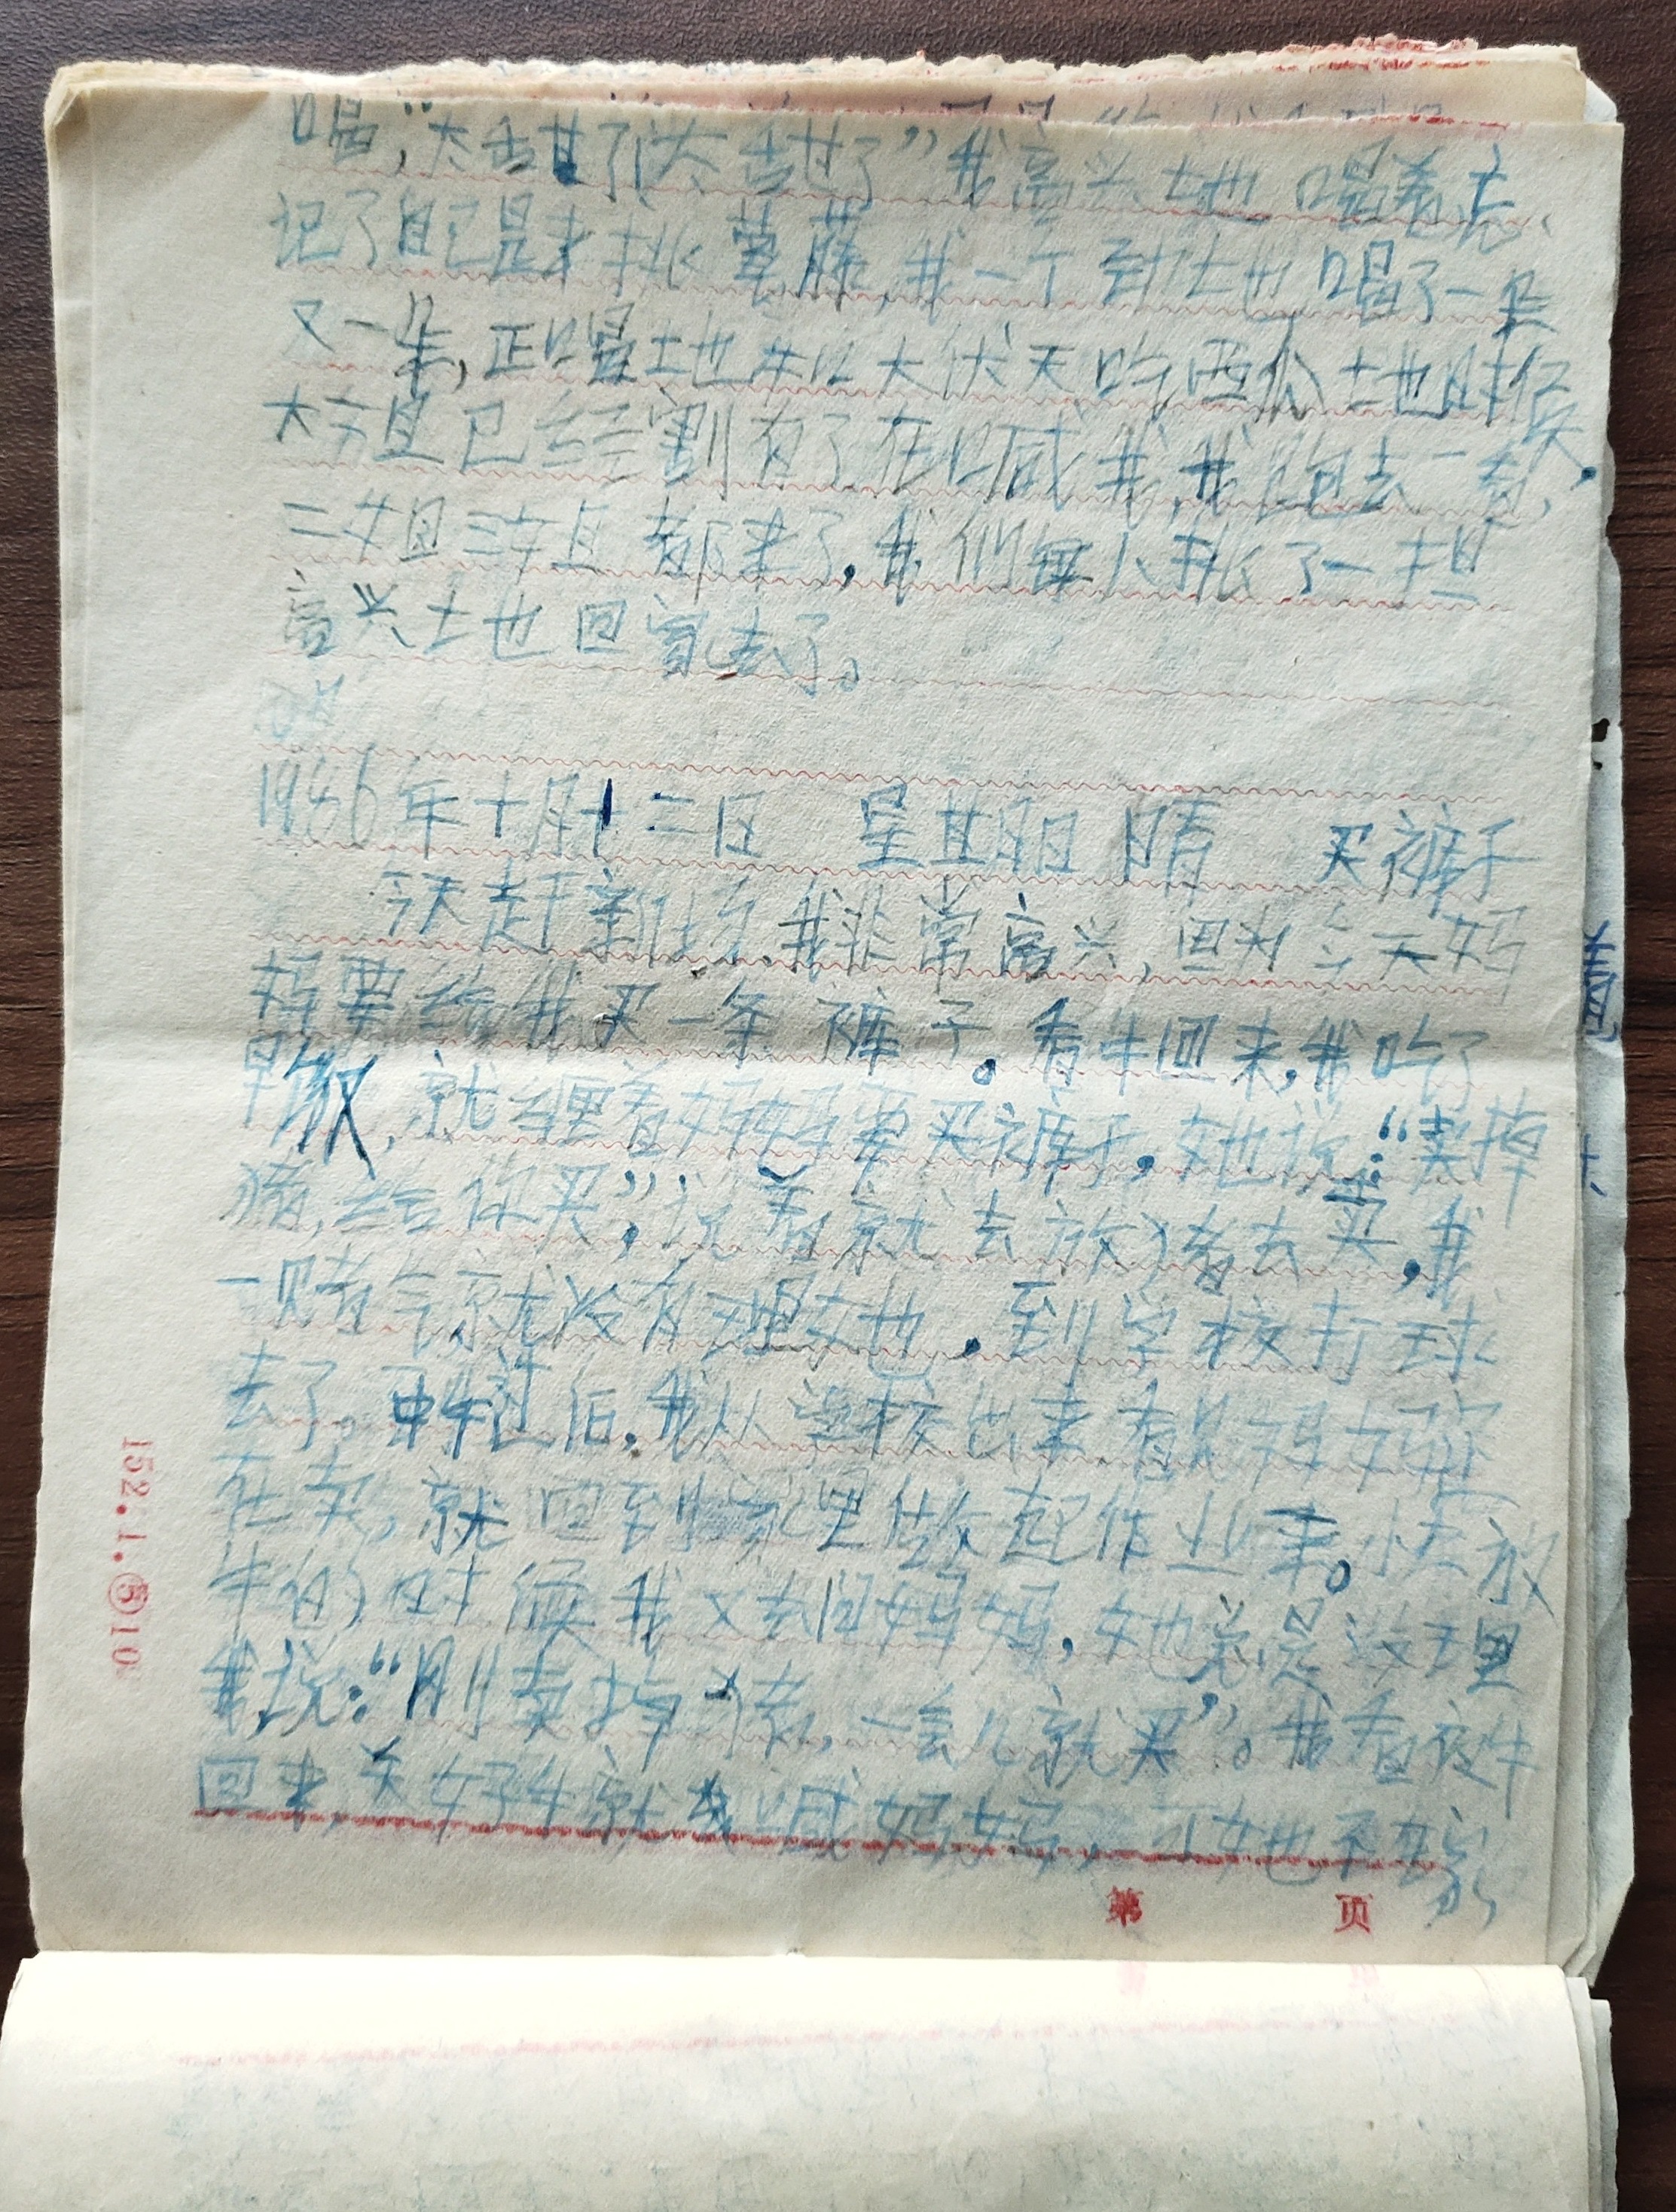 喝，“太香甘了太香甘了”我高兴地喝着，忘
记了自己是来挑薯藤，我一个劲地喝了一朵
又一朵，正喝地如大伏天吃西瓜地时候，
大姐已经割有了在喊我，我跑去一看，
二姐三姐都来了，我们每人挑了一担
高兴地回家去了。
1986年十月十二日 星期日 晴 买裤子
今天赶新场，我非常高兴，因为今天妈
妈要给我买一条裤子。看牛回来，我吃了
早饭，就缠着妈妈要买裤子，她说：“卖掉
猪，给你买”，说着就去放猪去卖，我
一赌气就没有理她，到学校打球
去了。中午过后，我从学校出来看见妈妈还
在卖，就回到家里做起作业来。快放
牛的时候我又去问妈妈，她总是没理
我，说：“刚卖掉猪，一会儿就买”。我看夜牛
回来，关好牛就喊妈妈，可她不在家
第 页
152.1.⑤10